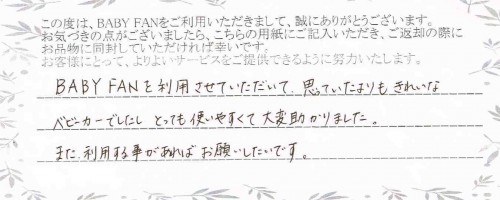 この度は、BABY FANをご利用いただきまして、誠にありがとうございます。
お気づきの点がございましたら、こちらの用紙にご記入いただき、ご返却の際に
お品物に同封していただければ幸いです。
お客様にとって、よりよいサービスをご提供できるように努力いたします。
BABY FANを利用させていただいて、思っていたよりも きれいな
ベビーカーでしたし とっても使いやすくて大変助かりました。
また、利用する事があれば お願いしたいです。